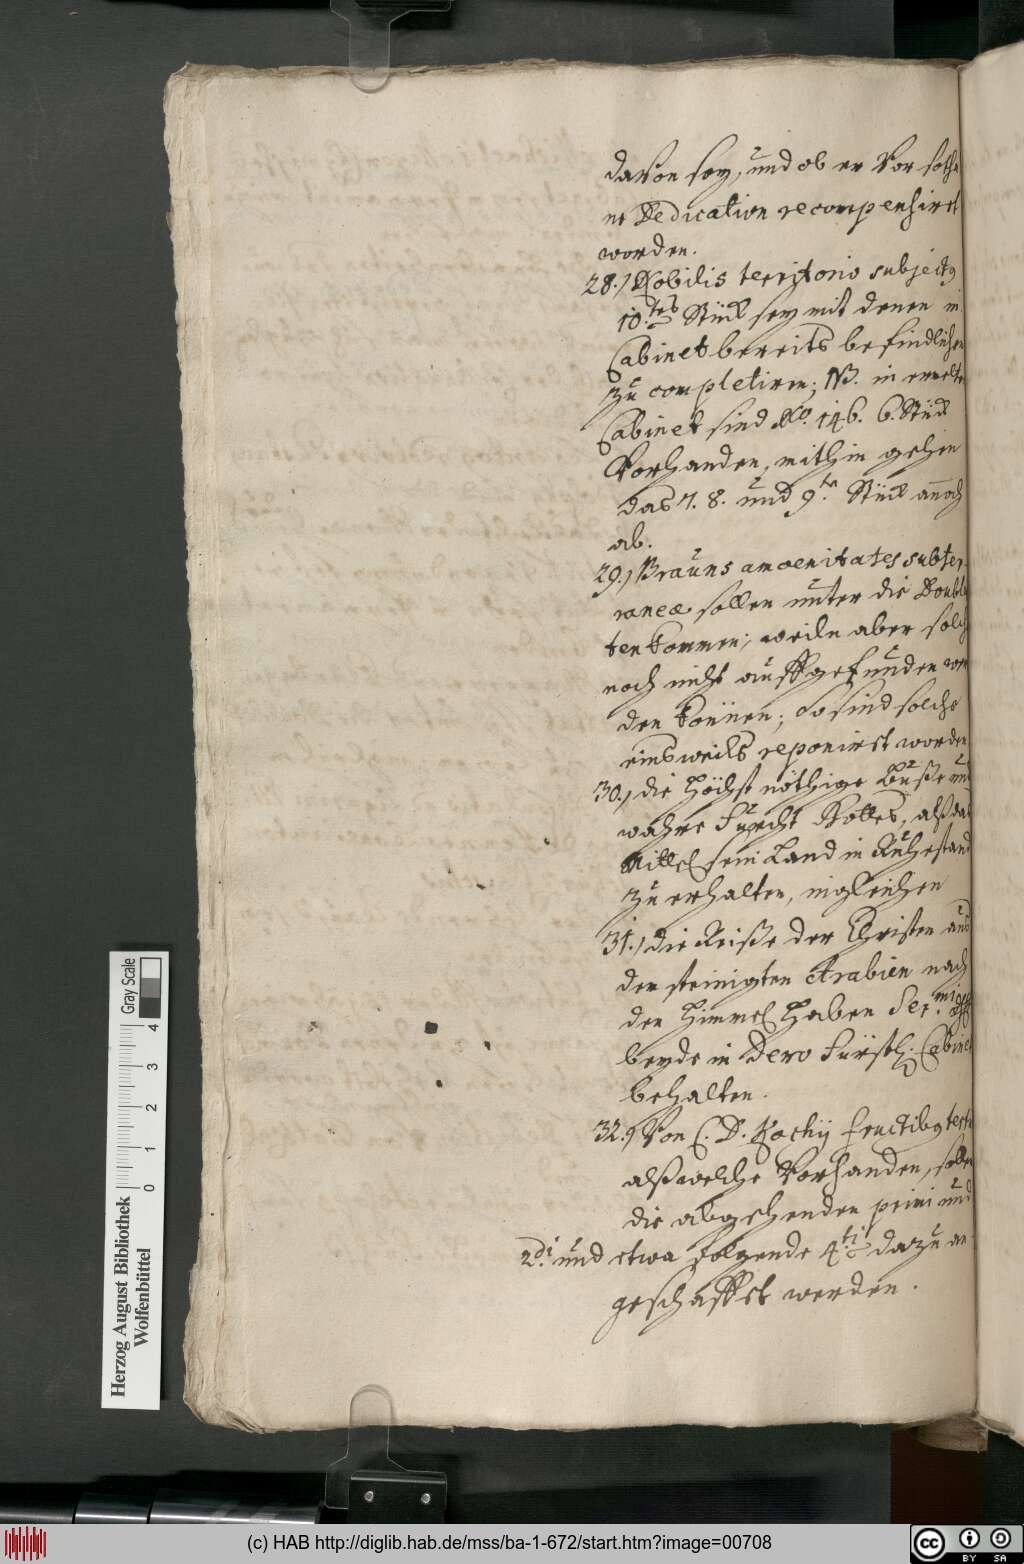 davon sey, und ob er vor sotha
ne Dedication recompensiret
worden.
28.) Nobilis territorio subject9
10.tes Stück sey mit denen in
Cabinet bereits befindlichen
zu completiren; NB. in ermelte
Cabinet sind No. 146. 6. Stück
Vorhanden, mithin gehen
das 7. 8. und 9.te Stück annoch
ab.
29.) Brauns amoenitates subter-
raneæ sollen unter die Doublet
ten kommen; weiln aber solche
noch nicht auffgefunden wer
den können; So sind solche
einsweils reponiret worden
30.) die höchst nöthige Buße und
wahre Furcht Gottes, alß das
Mittel sein Land in Ruhestand
zu erhalten, ingleichen
31.) die Reiße der Christen aus
den steinigten Arabien nach
den Himmel haben Ser.mi
beyde in Dero Fürstl. Cabinet
behalten.
32.) Von C. D. Kochij fructib9 tertii
alß welche Vorhanden, sollen
die abgehenden primi und
2di. und etwa folgende 4ti dazu an
geschaffet werden.
Gray Scale
0 1 2 3 4
Herzog August Bibliothek
Wolfenbüttel
(c) HAB http://diglib.hab.de/mss/ba-1-672/start.htm?image=00708
cc BY SA